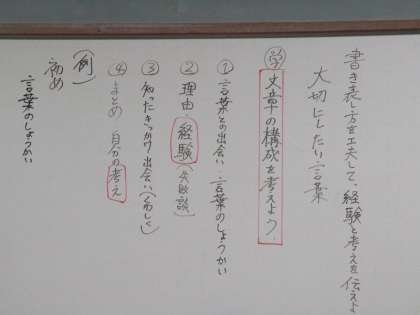 書き表し方を工夫して、経験と考えを伝えよ
大切にしたい言葉
学 文章の構成を考えよう。
① 言葉との出会い・言葉のしょうかい
② 理由・経験(失敗談)
③ 知ったきっかけ・出会い(くわしく)
④ まとめ 自分の考え
(例)
初め
言葉のしょうかい